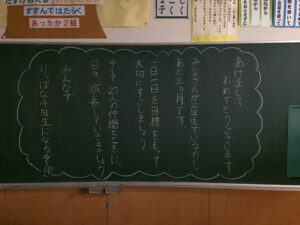 すすんではたらく
あったか2組
あけまして
おめでとうございます
みなさんが三年生でいるのも
あと三ヵ月です。
一日一日を目標をもって
大切にすごしましょう
そして27人の仲間とともに、
日々成長していきましょう
みんなで
りっぱな4年生になるぞ